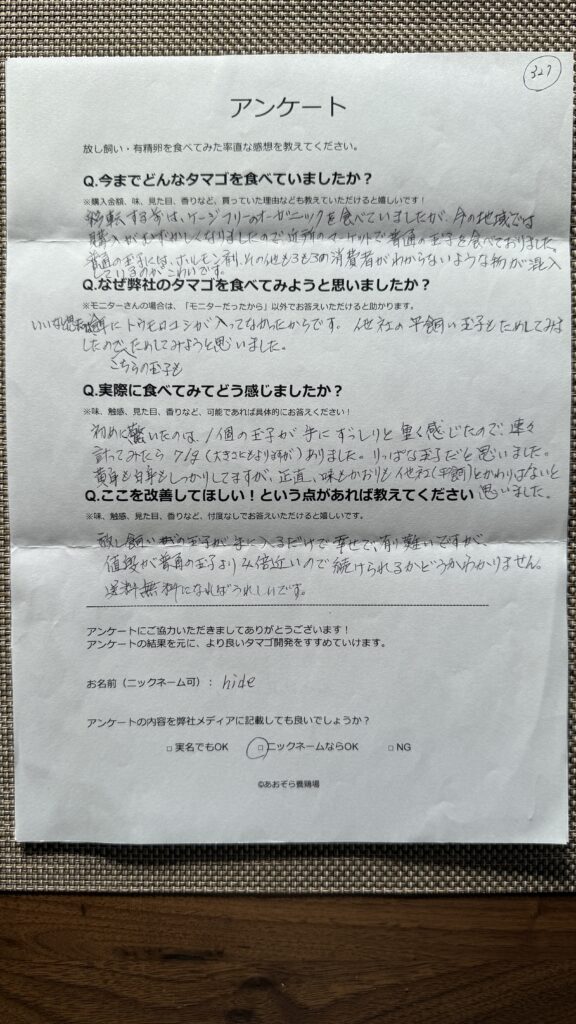 327
アンケート
放し飼い・有精卵を食べてみた率直な感想を教えてください。
Q.今までどんなタマゴを食べていましたか？
※購入金額、味、見た目、香りなど、買っていた理由なども教えていただけると嬉しいです！
移転する前は、ケージフリーのオーガニックを食べていましたが、今の地域では
購入がむずかしくなりましたので、近所のマーケットで普通の玉子を食べておりました。
普通の玉子には、ホルモン剤、その他もろもろの消費者がわからないような物が混入
しているのがこわいです。
Q.なぜ弊社のタマゴを食べてみようと思いましたか？
※モニターさんの場合は、「モニターだったから」以外でお答えいただけると助かります。
にトウモロコシが入ってなかったからです。他社の平飼い玉子もためしてみま
したので、こちらの玉子もためしてみようと思いました。
Q.実際に食べてみてどう感じましたか？
※味、触感、見た目、香りなど、可能であれば具体的にお答えください！
初めに驚いたのは、1個の玉子が手にずっしりと重く感じたので、速々
計ってみたら71g(大きさにもよりますが)ありました。りっぱな玉子だと思いました。
黄身も白身もしっかりしてますが、正直、味もかおりも他社(平飼)とかわりはないと
思いました。
Q.ここを改善してほしい！という点があれば教えてください
※味、触感、見た目、香りなど、忖度なしでお答えいただけると嬉しいです。
放し飼いの玉子が手に入るだけで幸せで、有り難いですが、
値段が普通の玉子より倍近いので続けられるかどうかわかりません。
送料無料になればうれしいです。
アンケートにご協力いただきましてありがとうございます！
アンケートの結果を元に、より良いタマゴ開発をすすめていけます。
お名前（ニックネーム可）： hide
アンケートの内容を弊社メディアに記載しても良いでしょうか？
□ 実名でもOK □ ニックネームならOK □ NG
©あおぞら養鶏場